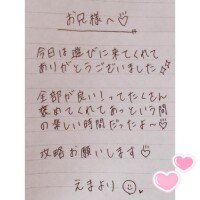 お兄様へ♡
今日は遊びに来てくれて
ありがとうございました✨
全部が良い！ってたくさん
褒めてくれてあっという間
の楽しい時間だったよ〜♡
攻略お願いします♡
えまより☺